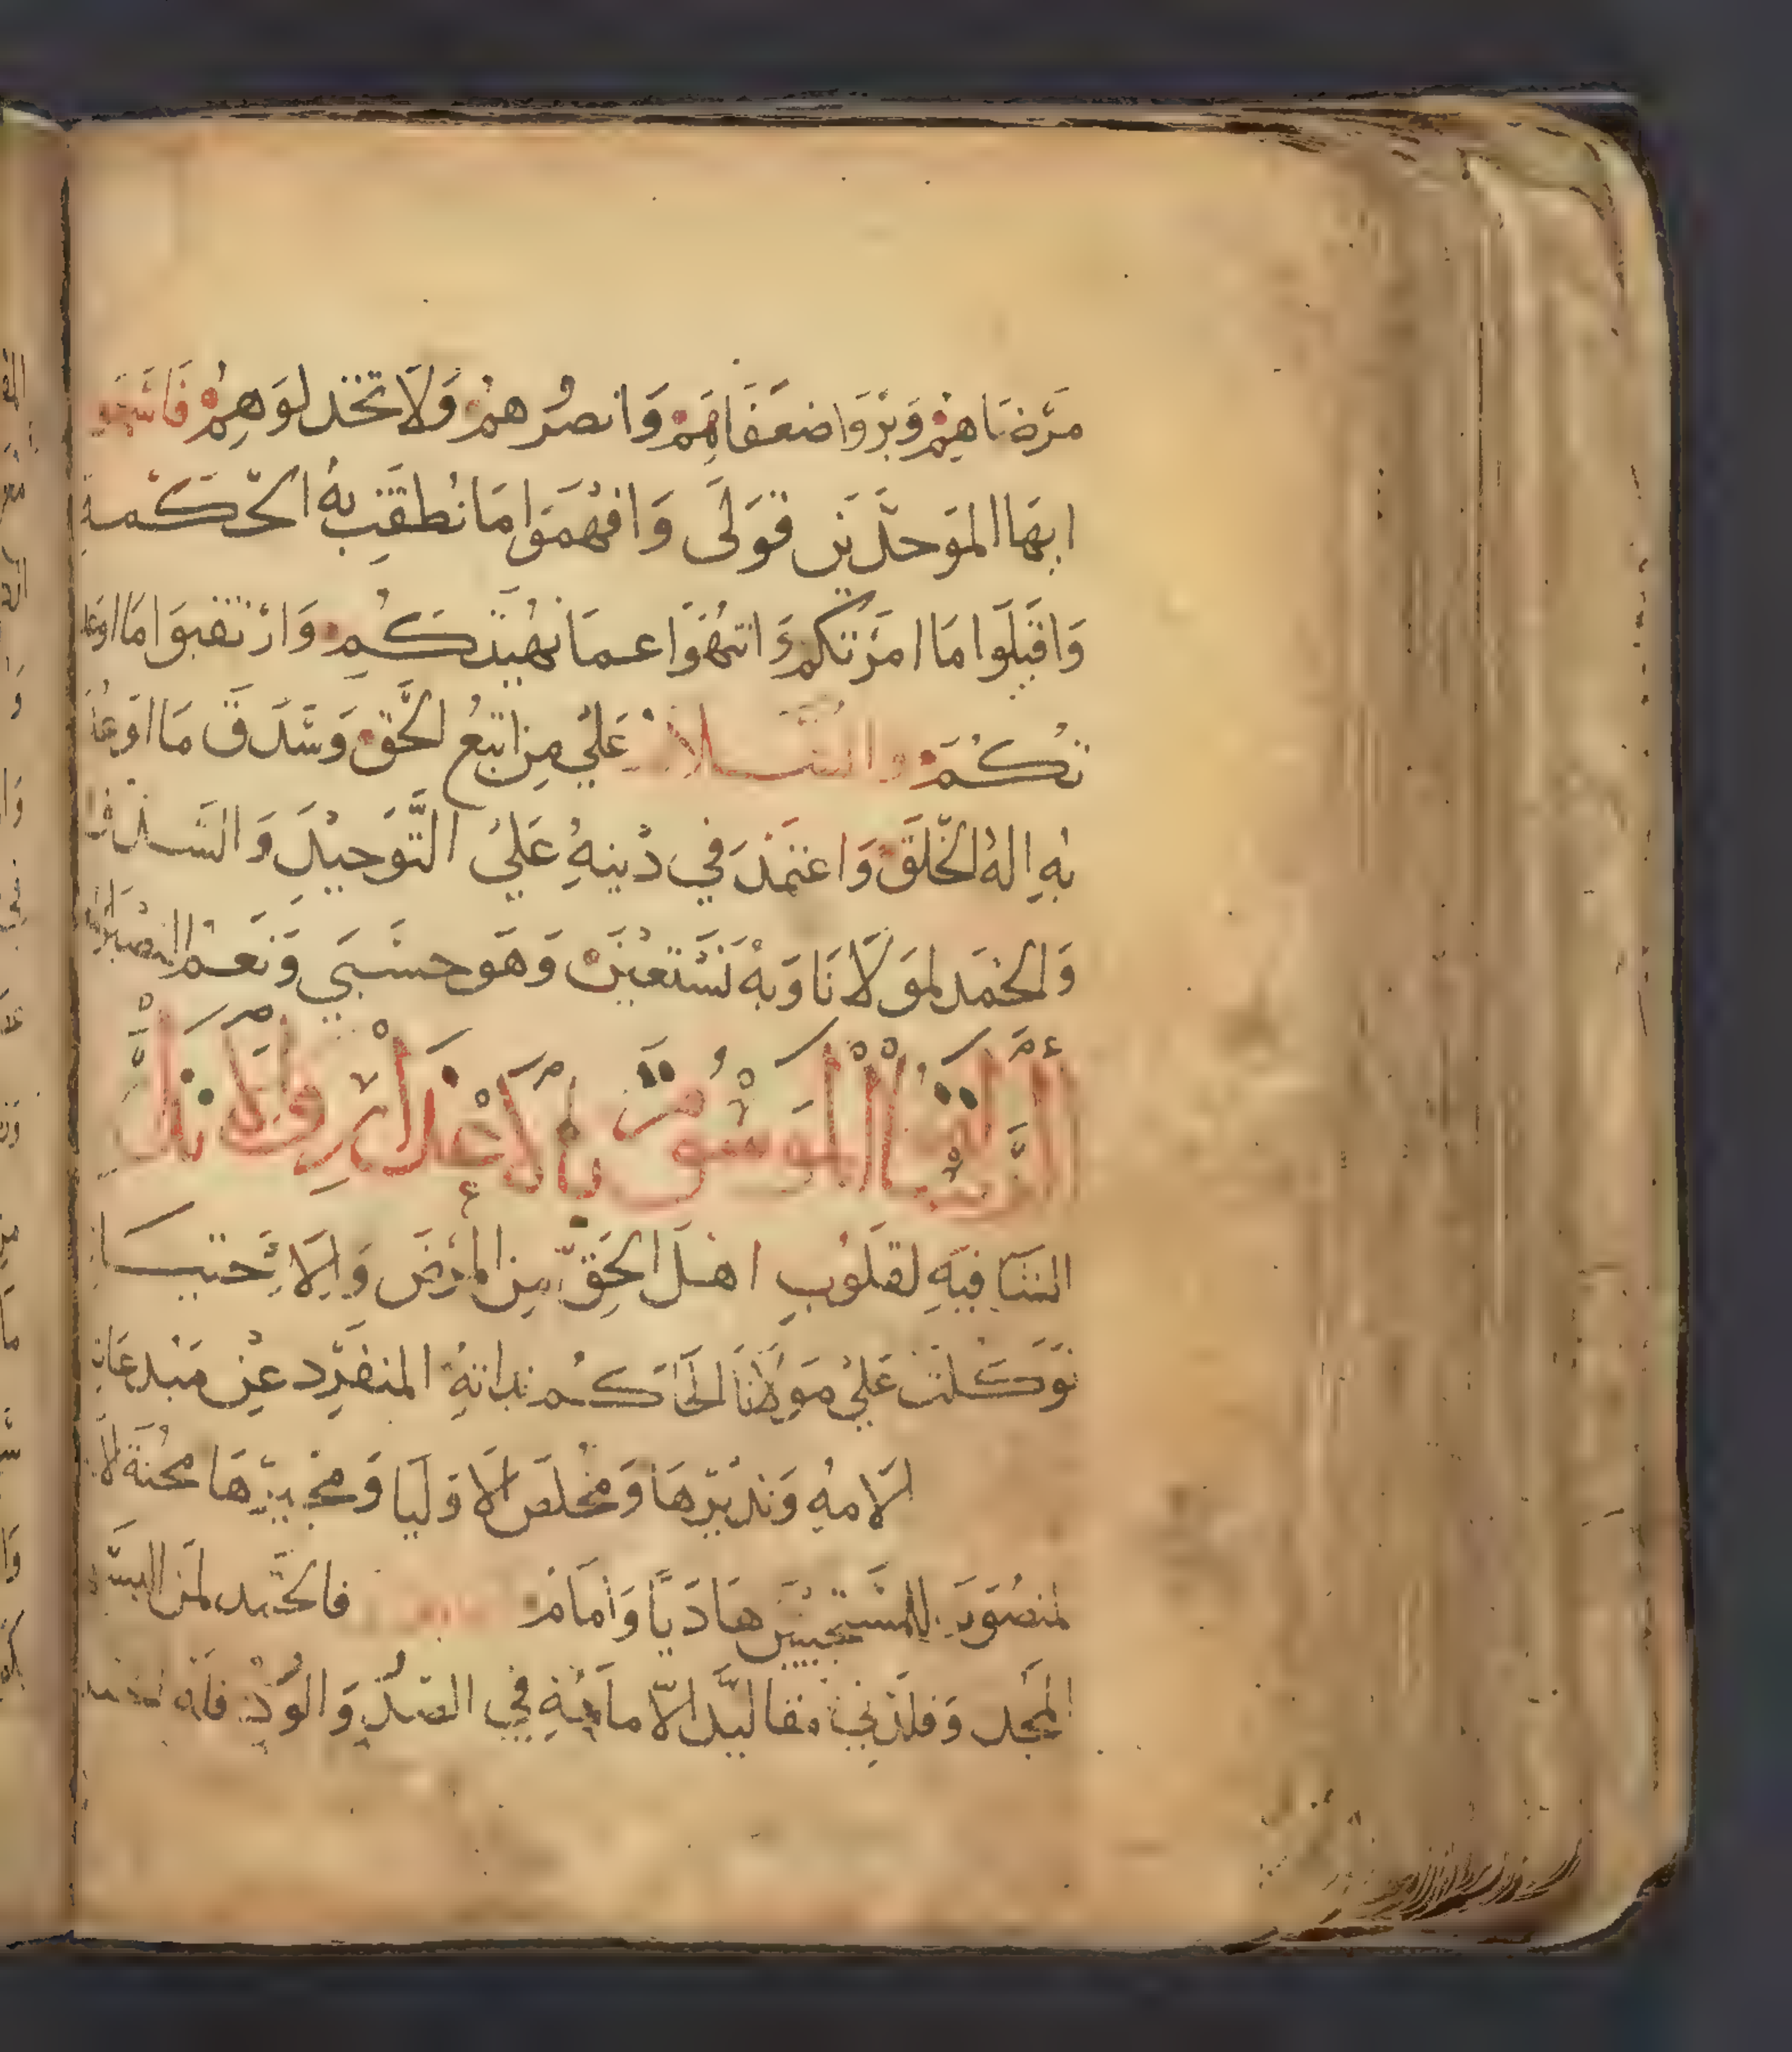 مرضاهم وبروا ضعفاهم وانصرهم ولا تخدلوهم فاسمعو
ايها الموحدين قولي وافهموا ما نطقت به الحكمة
واقبلوا ما امرتكم وانتهوا عما نهيتكم وارتقبوا ما اوعد
تكم والسلام علي من اتبع الحق وسدق ما اوعد
به اله الخلق واعتمد في دينه علي التوحيد والسدق
والحمد لمولانا وبه نستعين وهو حسبي ونعم النصير
الرسالة الموسومة بالاعذار والانذار
الشافية لقلوب اهل الحق من المرض والاحتيار
توكلت علي مولانا الحاكم بداته المنفرد عن مبدعاته
لامه ونديرها ومخلص الاوليا ومجيرها محنة الا
لمنصور للمستجيبين هاديا وامام فالحمد لمن البسني
المجد وقلدني مقاليد الامامية في الصد والود فانه